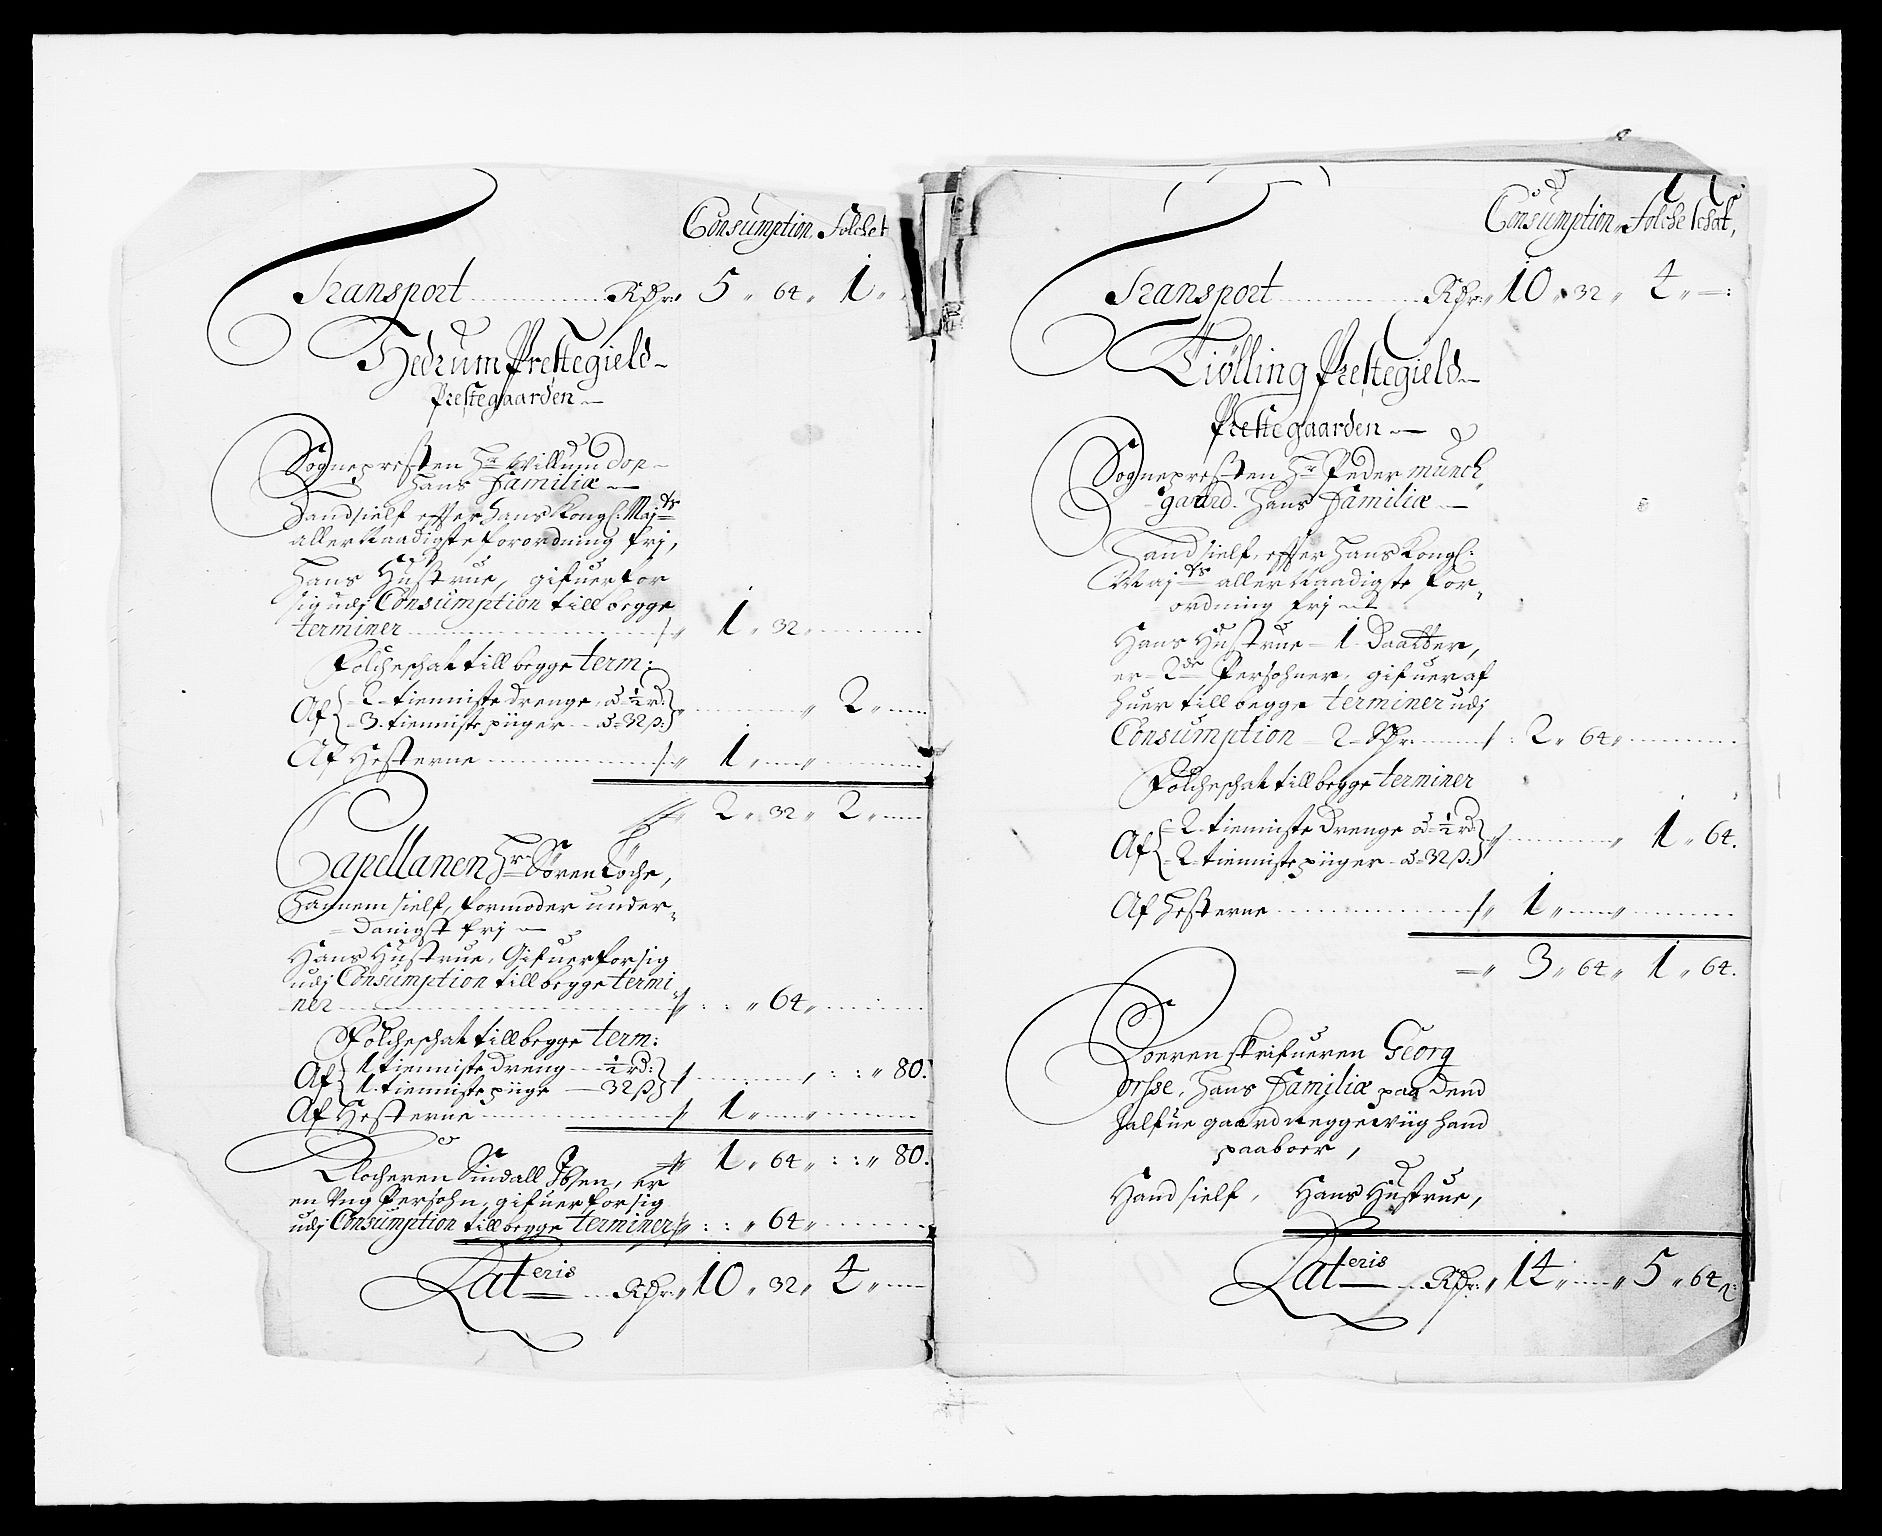 Consumption. Folche
Transport Rdr: 5 " 64 " 1 "
Hedrum Prestegield
Prestegaarden
Sognepresten Hr Willum Dop
hans Familiæ
Hand sielf effter hans Kongl: Majts
aller Naadigste forordning frj,
Hans Hustrue, gifuer for
sig udj Consumption till begge
terminer 1 " 32 "
Folcheschat till begge term:
Af { 2 tienniste drenge, á ½ rd:
3 tienniste piiger á 32 s: } " 2 "
Af Hesterne 1 "
2 " 32 " 2 "
Capellanen Hr Søren Coche,
Hannem sielf, formoder under-
danigst frj
Hans Hustrue, Gifuer for sig
udj Consumption till begge termi-
ner : : " 64 "
Folcheschat till begge term:
Af { 1 tienniste dreng ½ rd:
1 tienniste piige 32 s } : : " 80.
Af Hesterne 1 "
1 " 64 " : : " 80.
Klocheren Sindall Ibsen, er
en Ung Persohn, gifuer for sig
udj Consumption till begge terminer : : " 64 "
Lateris Rdr: 10 " 32 " 4 "
Consumption " Folche schat,
Transport Rdr: " 10 " 32 " 4 " :
Tiølling Prestegield
Prestegaarden
Sognepresten Hr Peder Munch
gaard. hans Familiæ
Hand sielf, effter hans Kongl:
Majts aller Naadigste for-
ordning frj
Hans Hustrue 1 Daatter,
er 2de Persohner, gifuer af
huer till begge terminer udj
Consumption 2 Rdr. : 2 " 64 "
Folcheschat till begge terminer
Af { 2 tienniste Drenge á ½ rd:
2 tienniste piiger á 32 s: } " 1 " 64.
Af Hesterne 1 "
" 3 " 64 " 1 " 64.
Soerenskrifueren Georg
orsse, hans Familiæ paa dend
halfue gaard hand
paaboer,
Hand sielf, Hans Hustrue,
Lateris Rdr: " 14 " " 5 " 64